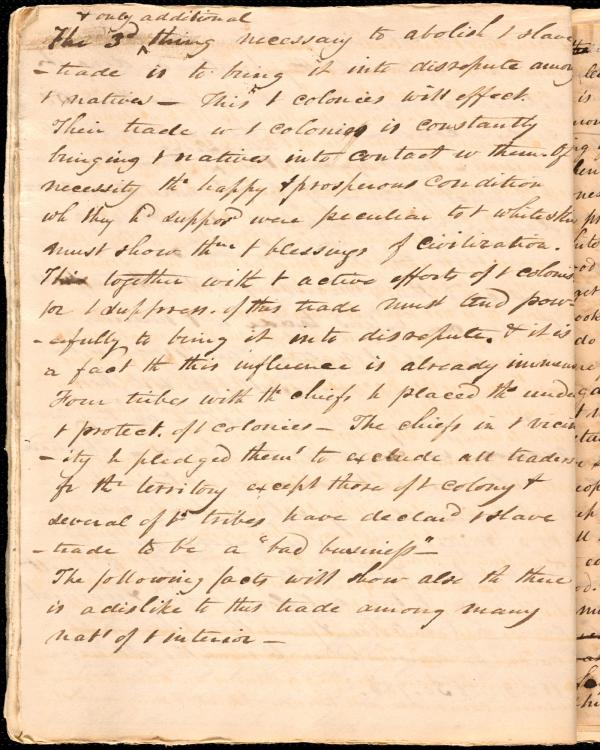 & only additional
The 3d ^ thing necessary to abolish t slave
-trade is to bring it into disrepute among
t natives — This t colonies will effect.
Their trade w t colonies is constantly
bringing t natives into contact w them. Of
necessity th happy & prosperous condition
wh they hd supposd were peculiar to t whites they
must show thm t blessings of civilization.
This together with t active efforts of t colonies
for t suppress. of this trade must tend pow-
-erfully to bring it into disrepute. & it is
a fact th this influence is already immense
Four tribes with th chiefs h placed thm under
t protect. of t colonies — The chiefs in t vicin
-ity h pledged thems to exclude all traders
fr thr territory except those of t colony &
several of th tribes have declard t slave
-trade to be a "bad business" —
The following facts will show also th there
is a dislike to this trade among many
nats of t interior —